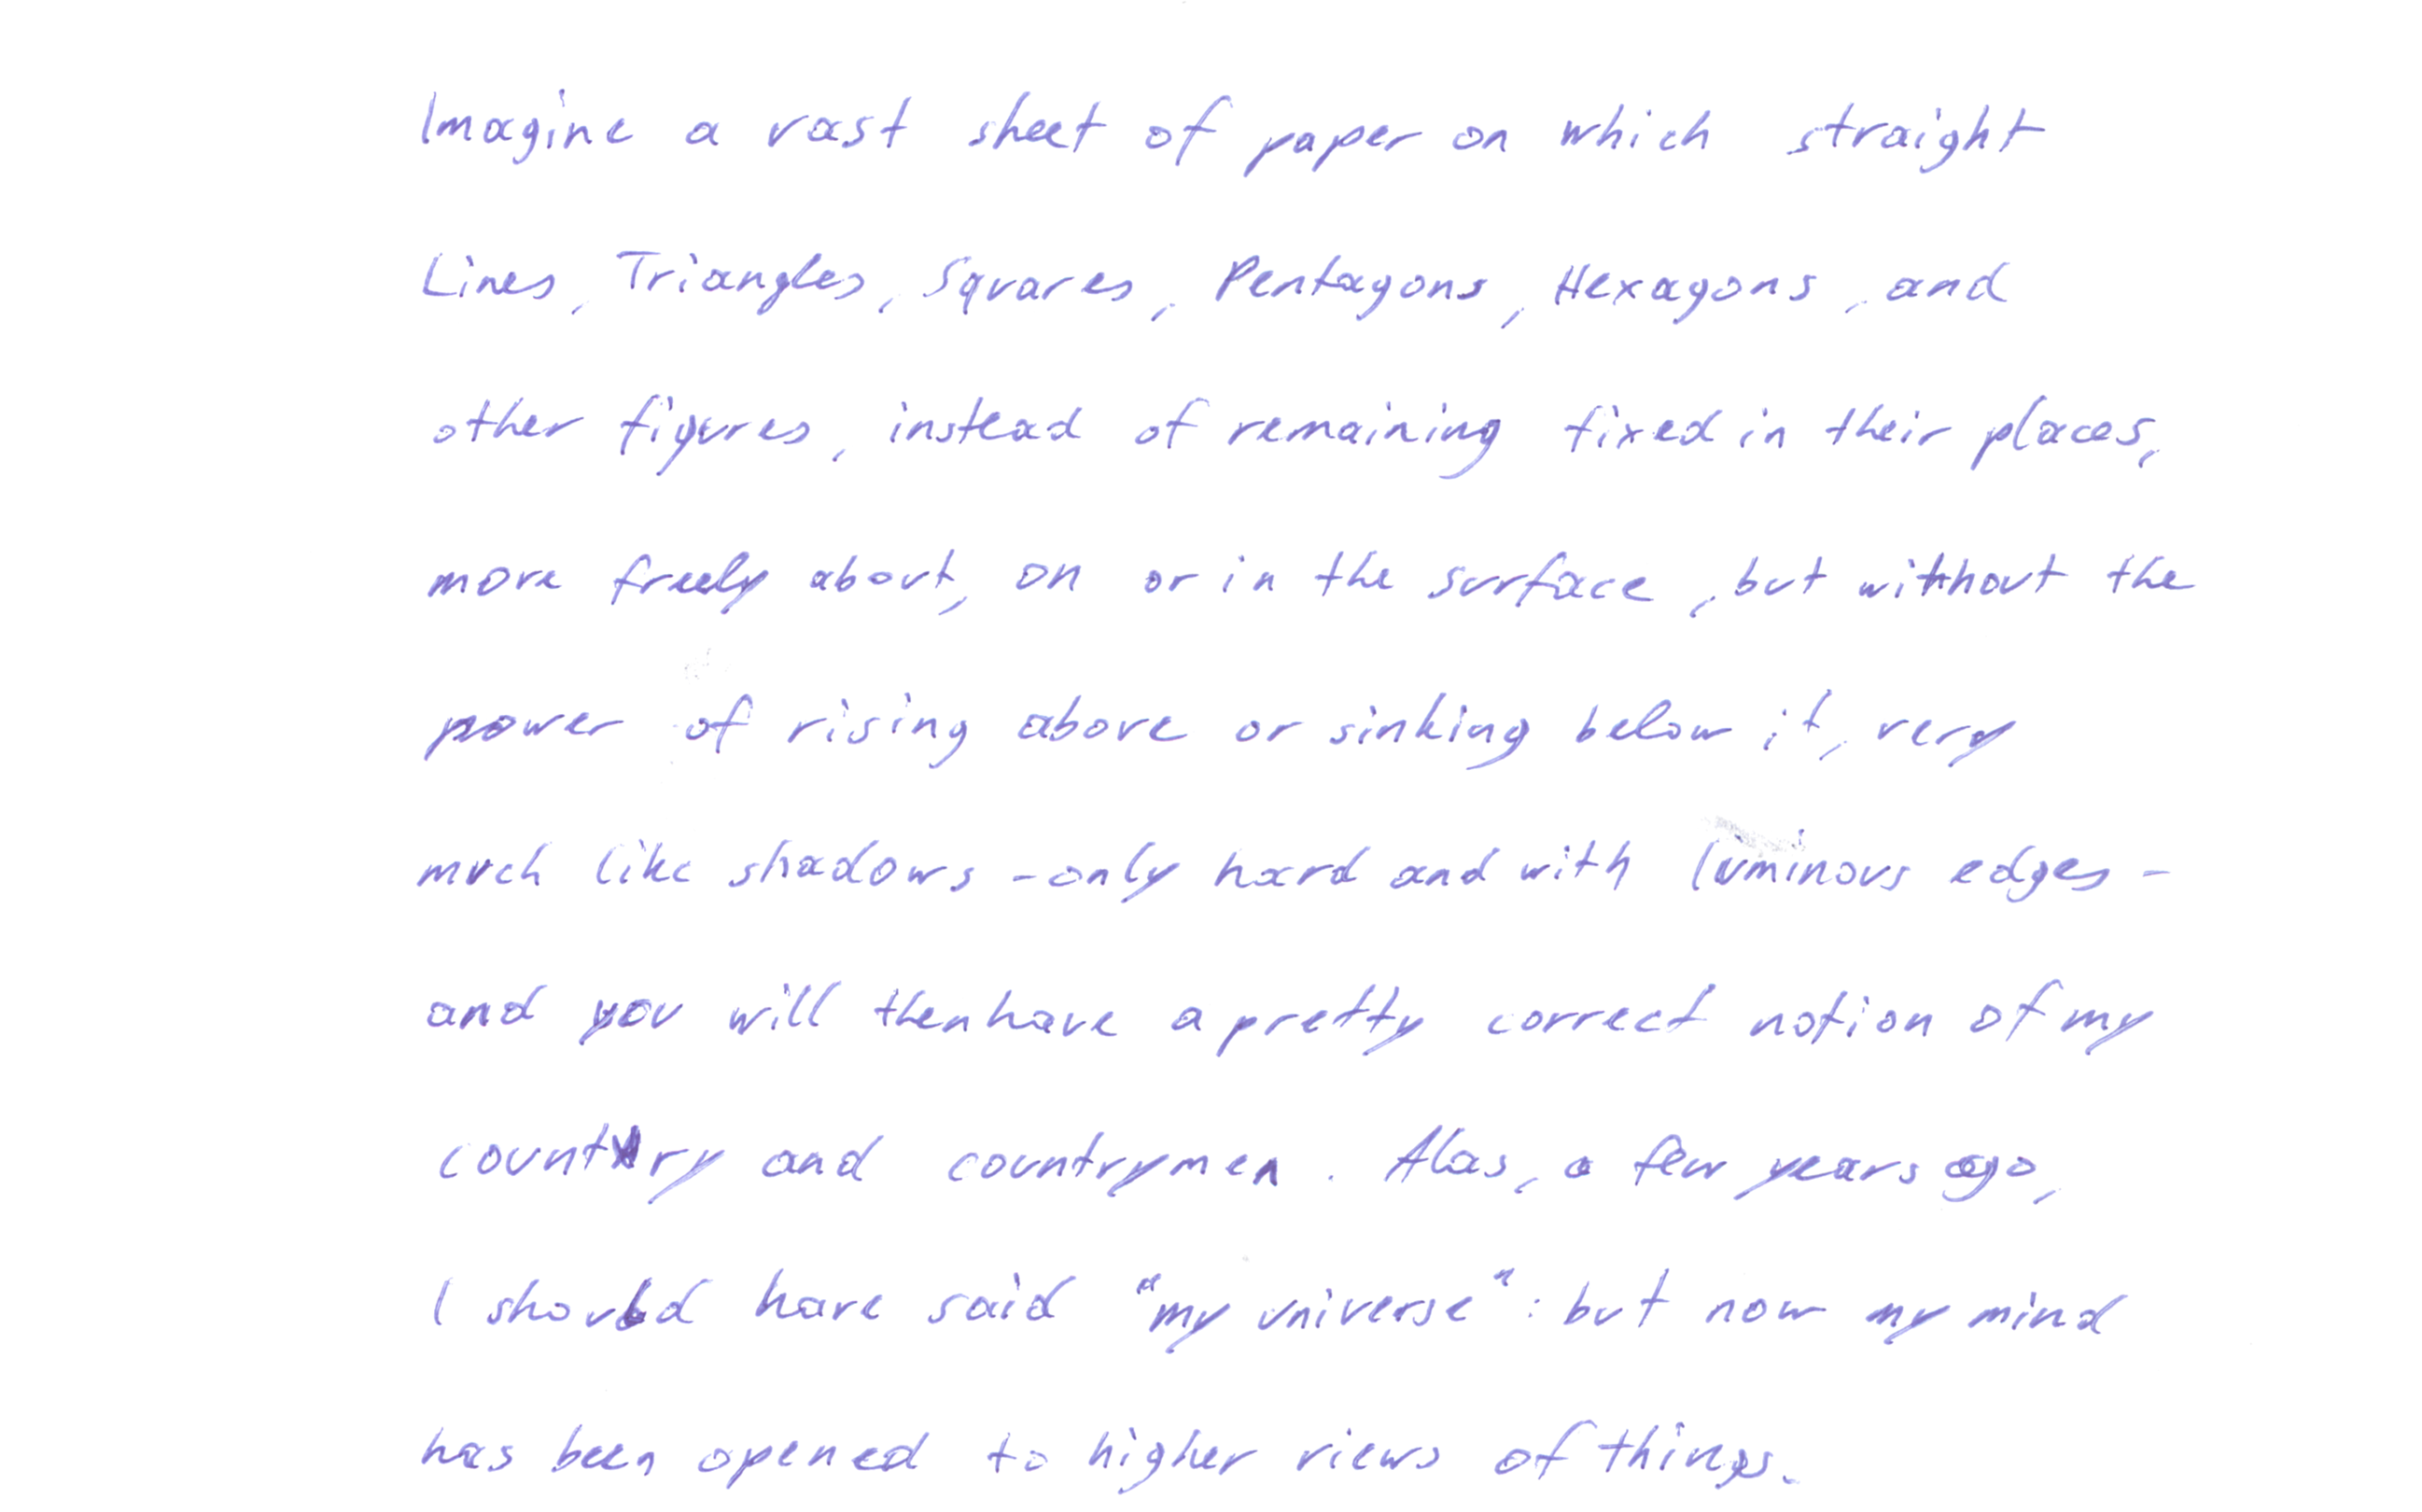 Imagine a vast sheet of paper on which straight
Lines, Triangles, Squares, Pentagons, Hexagons, and
other figures, instead of remaining fixed in their places,
more freely about, on or in the surface, but without the
power of rising above or sinking below it, very
much like shadows - only hard and with luminous edges -
and you will then have a pretty correct notion of my
country and countrymen. Alas, a few years ago,
I should have said "my universe": but now my mind
has been opened to higher views of things.